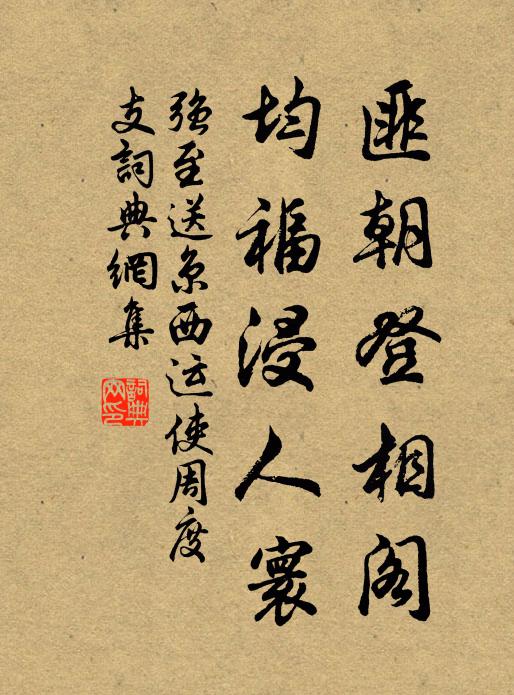 匪朝登相阁
均福浸人寰
强至送京西运使周度
支詞典網集
詞典
网印